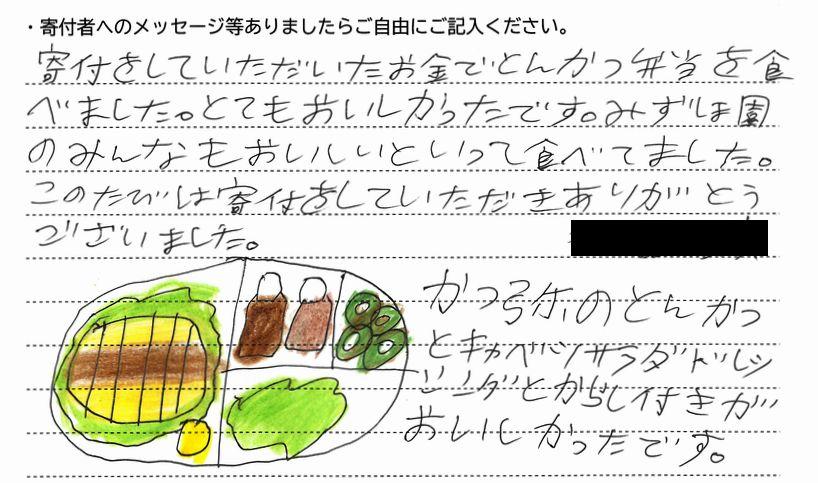 ・寄付者へのメッセージ等ありましたらご自由にご記入ください。
寄付をしていただいたお金でとんかつ弁当を食
べました。とてもおいしかったです。みずほ園
のみんなもおいしいといって食べてました。
このたびは寄付をしていただきありがとう
ございました。
かつ弥のとんかつ
とキャベツサラダドレッ
シングとからし付きが
おいしかったです。